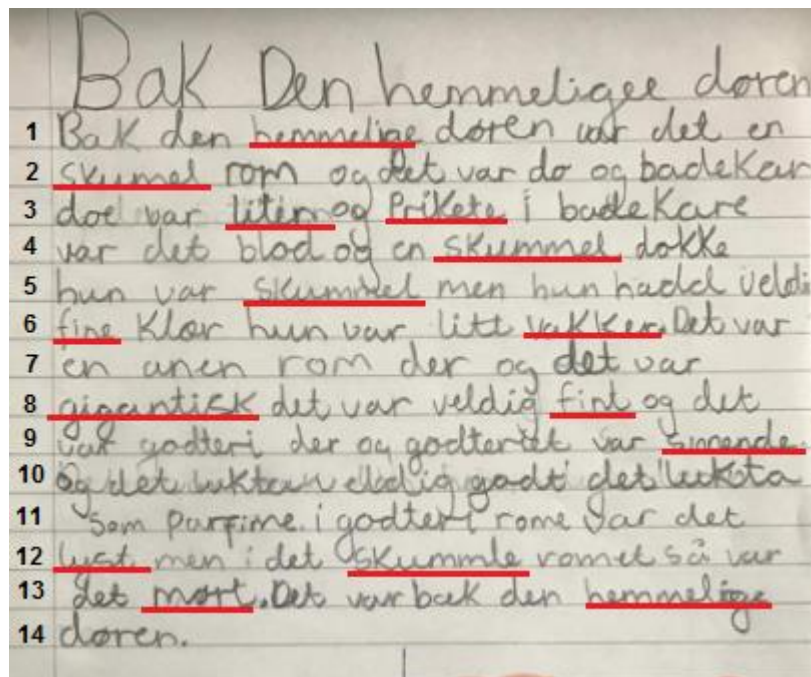 Bak Den hemmeligee døren
1 Bak den hemmelige døren var det en
2 skumel rom og det var do og badekar
3 doe var liten og Prikete i badekare
4 var det blod og en skummel dokke
5 hun var skummel men hun hadd veldi
6 fine klør hun var litt vakker. Det var
7 en anen rom der og det var
8 gigantisk det var veldig fint og det
9 var godteri der og godteriet var
10 og det luktan veldig godt det lukta
11 som parfime. i godteri rome var det
12 lyst men i det skummle romet så var
13 det mørt. Det var bak den hemmelige
14 døren.